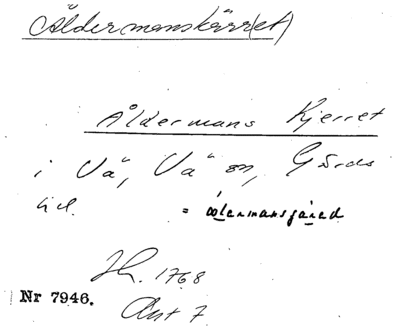 Åldermanskärr(et)
Åldermans Kjerret
i Vä, Vä sn, Gärds
hd.
Jh. 1768
Nr 7946.
Akt 7